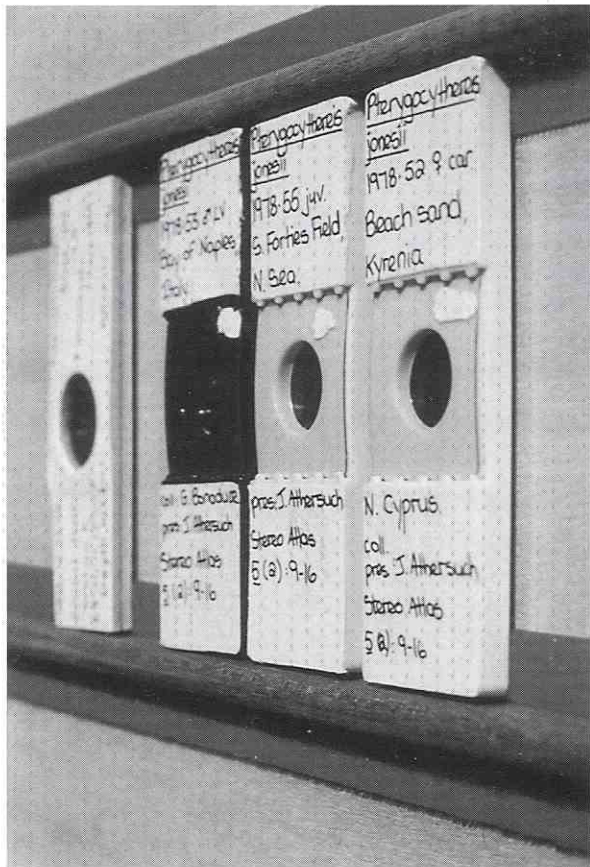 Pterygocythereis
jonesii
1978.53 ♂ LV
Bay of Naples,
Italy
coll. G. Bonaduce
pres. J. Athersuch
Stereo Atlas
5(2):9-16
Pterygocythereis
jonesii
1978.55 juv.
S. Forties Field,
N. Sea.
pres. J. Athersuch
Stereo Atlas
5(2):9-16
Pterygocythereis
jonesii
1978.52 ♀ car
Beach sand,
Kyrenia
N. Cyprus.
coll.
pres. J. Athersuch
Stereo Atlas
5(2):9-16